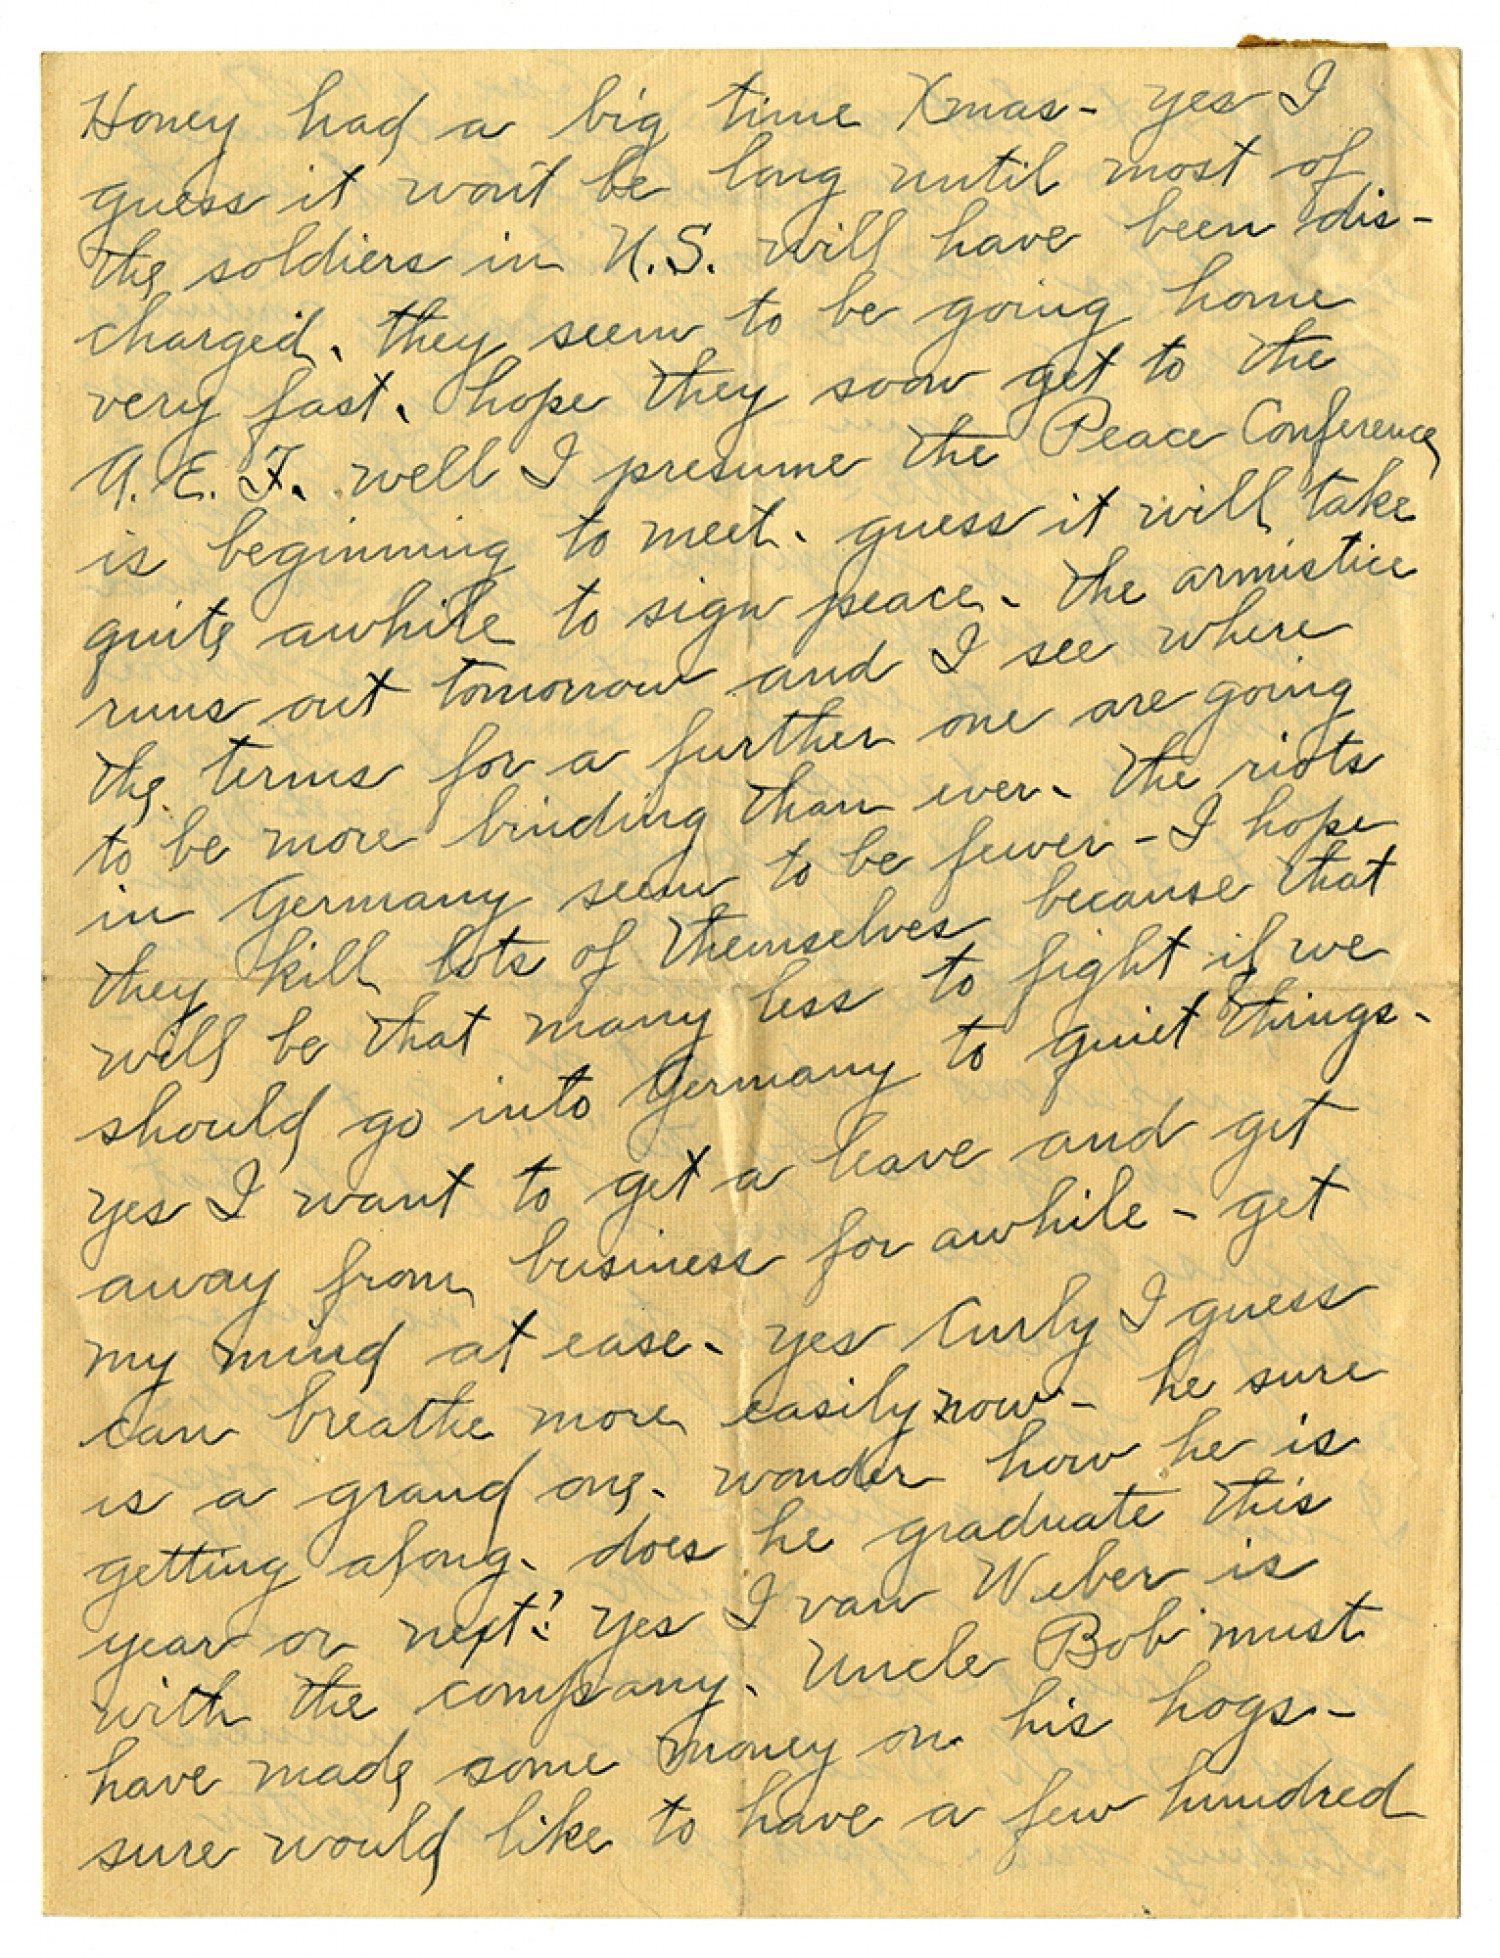 Honey had a big time Xmas- yes I
guess it won't be long until most of
the soldiers in U.S. will have been dis-
charged. they seem to be going home
very fast. hope they soon get to the
A.E.F. well I presume the Peace Conference
is beginning to meet. guess it will take
quite awhile to sign peace. the armistice
runs out tomorrow and I see where
the terms for a further one are going
to be more binding than ever. the riots
in Germany seem to be fewer - I hope
they kill lots of themselves because that
will be that many less to fight if we
should go into Germany to quiet things.
yes I want to get a leave and get
away from business for awhile - get
my mind at ease. yes Curly I guess
can breathe more easily now - he sure
is a grand one. wonder how he is
getting along. does he graduate this
year or next? yes Ivan Weber is
with the company. Uncle Bob must
have made some money on his hogs-
sure would like to have a few hundred